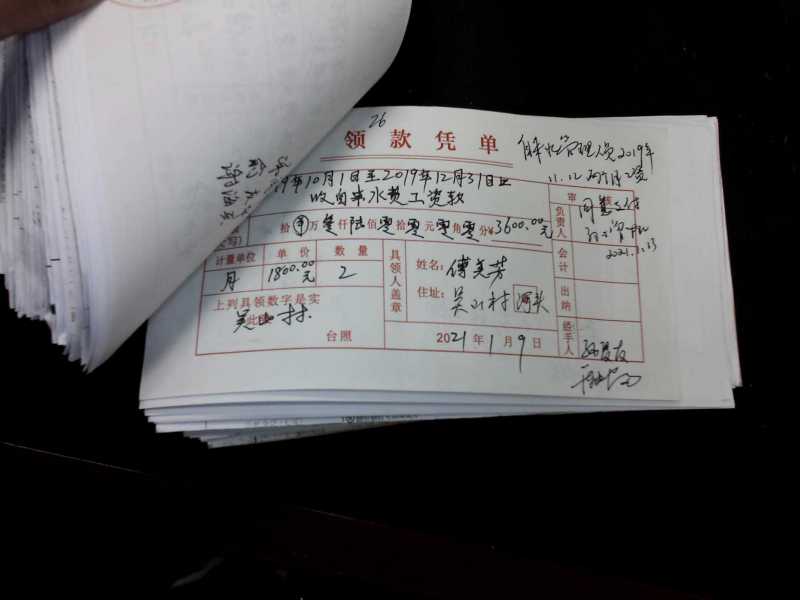 26
领款凭单
自来水管理员2019年
11.12两个月工资
9年10月1日至2019年12月31日止
收自来水费工资款
拾 万叁仟陆佰零拾零元零角零分¥3600.00元
计量单位 单价 数量
月 1800.00元 2
上列具领数字是实
此致
吴山村
台照
具领人盖章
姓名：傅美芳
住址：吴山村
2021年1月9日
审核
负责人
同意支付
2021.1.13
会计
出纳
经手人